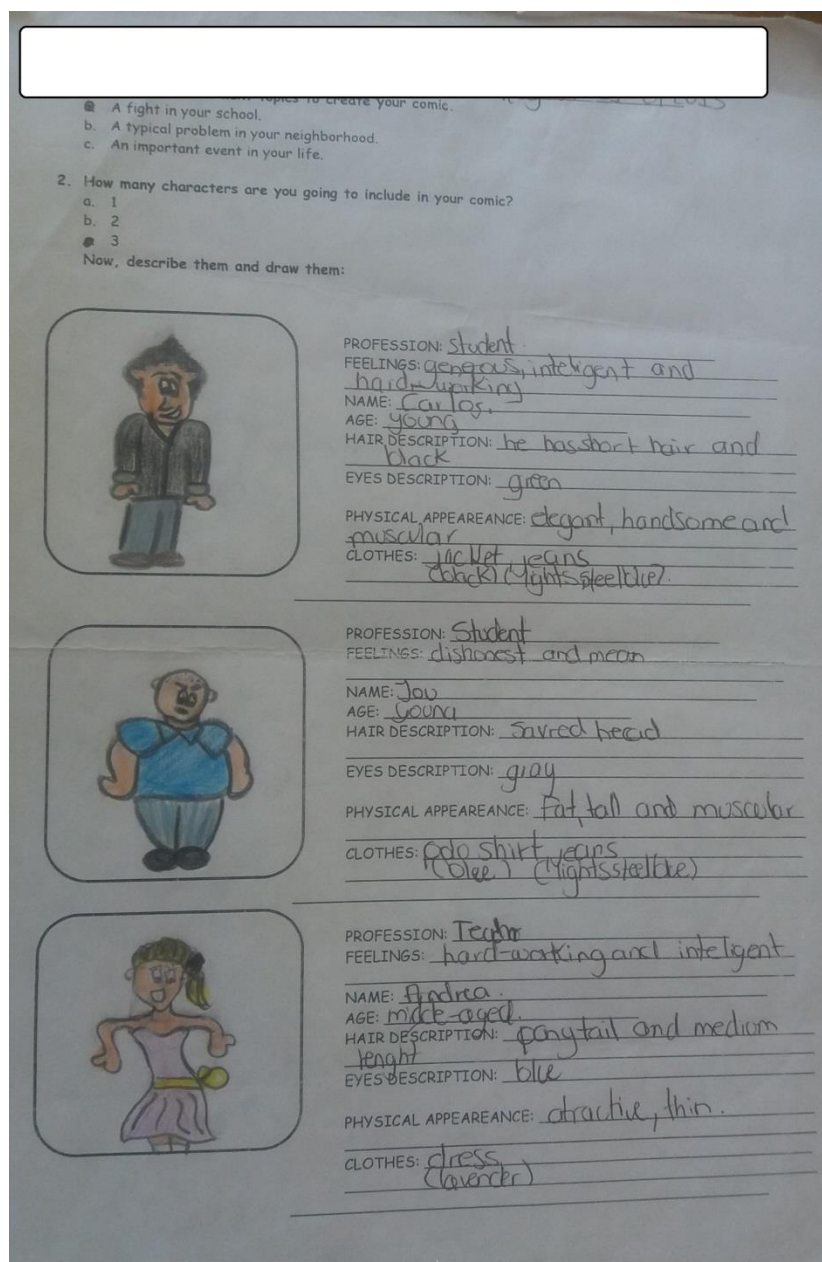 to create your comic.
A fight in your school.
b. A typical problem in your neighborhood.
c. An important event in your life.
2. How many characters are you going to include in your comic?
a. 1
b. 2
3
Now, describe them and draw them:
PROFESSION: Student.
FEELINGS: generous, inteligent and
hard-working
NAME: Carlos.
AGE: young
HAIR DESCRIPTION: he has short hair and
black
EYES DESCRIPTION: green
PHYSICAL APPEAREANCE: elegant, handsome and
muscular
CLOTHES: jacket jeans
(black) (lightssteelblue).
PROFESSION: Student
FEELINGS: dishonest and mean
NAME: Jou
AGE: young
HAIR DESCRIPTION: Savred head
EYES DESCRIPTION: gray
PHYSICAL APPEAREANCE: Fat, tall and muscular
CLOTHES: polo shirt jeans
(blee) (lightssteelblue)
PROFESSION:
FEELINGS: hard-working and inteligent
NAME: Andrea.
AGE: midde-aged.
HAIR DESCRIPTION: ponytail and mediom
lenght
EYES DESCRIPTION: blue
PHYSICAL APPEAREANCE: atractive, thin.
CLOTHES: dress
(lavender)